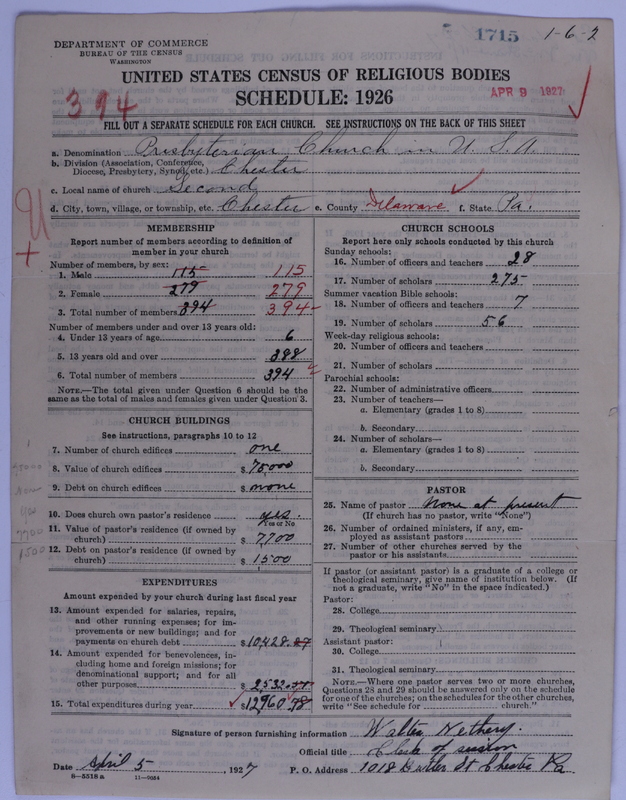 1715
1-6-2
DEPARTMENT OF COMMERCE
BUREAU OF THE CENSUS
WASHINGTON
UNITED STATES CENSUS OF RELIGIOUS BODIES
SCHEDULE: 1926
394
APR 9 1927
FILL OUT A SEPARATE SCHEDULE FOR EACH CHURCH. SEE INSTRUCTIONS ON THE BACK OF THIS SHEET
a. Denomination Presbyterian Church in U. S. A.
b. Division (Association, Conference, Diocese, Presbytery, Synod, etc.) Chester
c. Local name of church Second
d. City, town, village, or township, etc. Chester e. County Delaware f. State Pa.
MEMBERSHIP
Report number of members according to definition of
member in your church
Number of members, by sex:
1. Male 115 115
2. Female 279 279
3. Total number of members 394 394
Number of members under and over 13 years old:
4. Under 13 years of age 6
5. 13 years old and over 388
6. Total number of members 394
NOTE.—The total given under Question 6 should be
same as the total of males and females given under Question 3.
CHURCH BUILDINGS
See instructions, paragraphs 10 to 12
7. Number of church edifices one
8. Value of church edifices $75000
9. Debt on church edifices $none
10. Does church own pastor's residence yes.
Yes or No
11. Value of pastor's residence (if owned by
church) $7,700
12. Debt on pastor's residence (if owned by
church) $1500
7700
1500
EXPENDITURES
Amount expended by your church during last fiscal year
13. Amount expended for salaries, repairs,
and other running expenses; for im-
provements or new buildings; and for
payments on church debt $10,428.
14. Amount expended for benevolences, in-
cluding home and foreign missions; for
denominational support; and for all
other purposes $2532.
15. Total expenditures during year $12960
CHURCH SCHOOLS
Report here only schools conducted by this church
Sunday schools:
16. Number of officers and teachers 28
17. Number of scholars 275
Summer vacation Bible schools:
18. Number of officers and teachers 7
19. Number of scholars 56
Week-day religious schools:
20. Number of officers and teachers
21. Number of scholars
Parochial schools:
22. Number of administrative officers
23. Number of teachers—
a. Elementary (grades 1 to 8)
b. Secondary
24. Number of scholars—
a. Elementary (grades 1 to 8)
b. Secondary
PASTOR
25. Name of pastor None at present
(If church has no pastor, write "None")
26. Number of ordained ministers, if any, em-
ployed as assistant pastors
27. Number of other churches served by the
pastor or his assistants
If pastor (or assistant pastor) is a graduate of a college or
theological seminary, give name of institution below. (If
not a graduate, write "No" in the space indicated.)
Pastor:
28. College
29. Theological seminary
Assistant pastor:
30. College
31. Theological seminary
NOTE.—Where one pastor serves two or more churches,
Questions 28 and 29 should be answered only on the schedule
for one of the churches; on the schedules for the other churches,
write "See schedule for church."
Signature of person furnishing information Walter Nethery.
Official title Clerk of session
Date April 5, 1927 P. O. Address 1018 Butler St Chester Pa
8—5518 a 11—9034